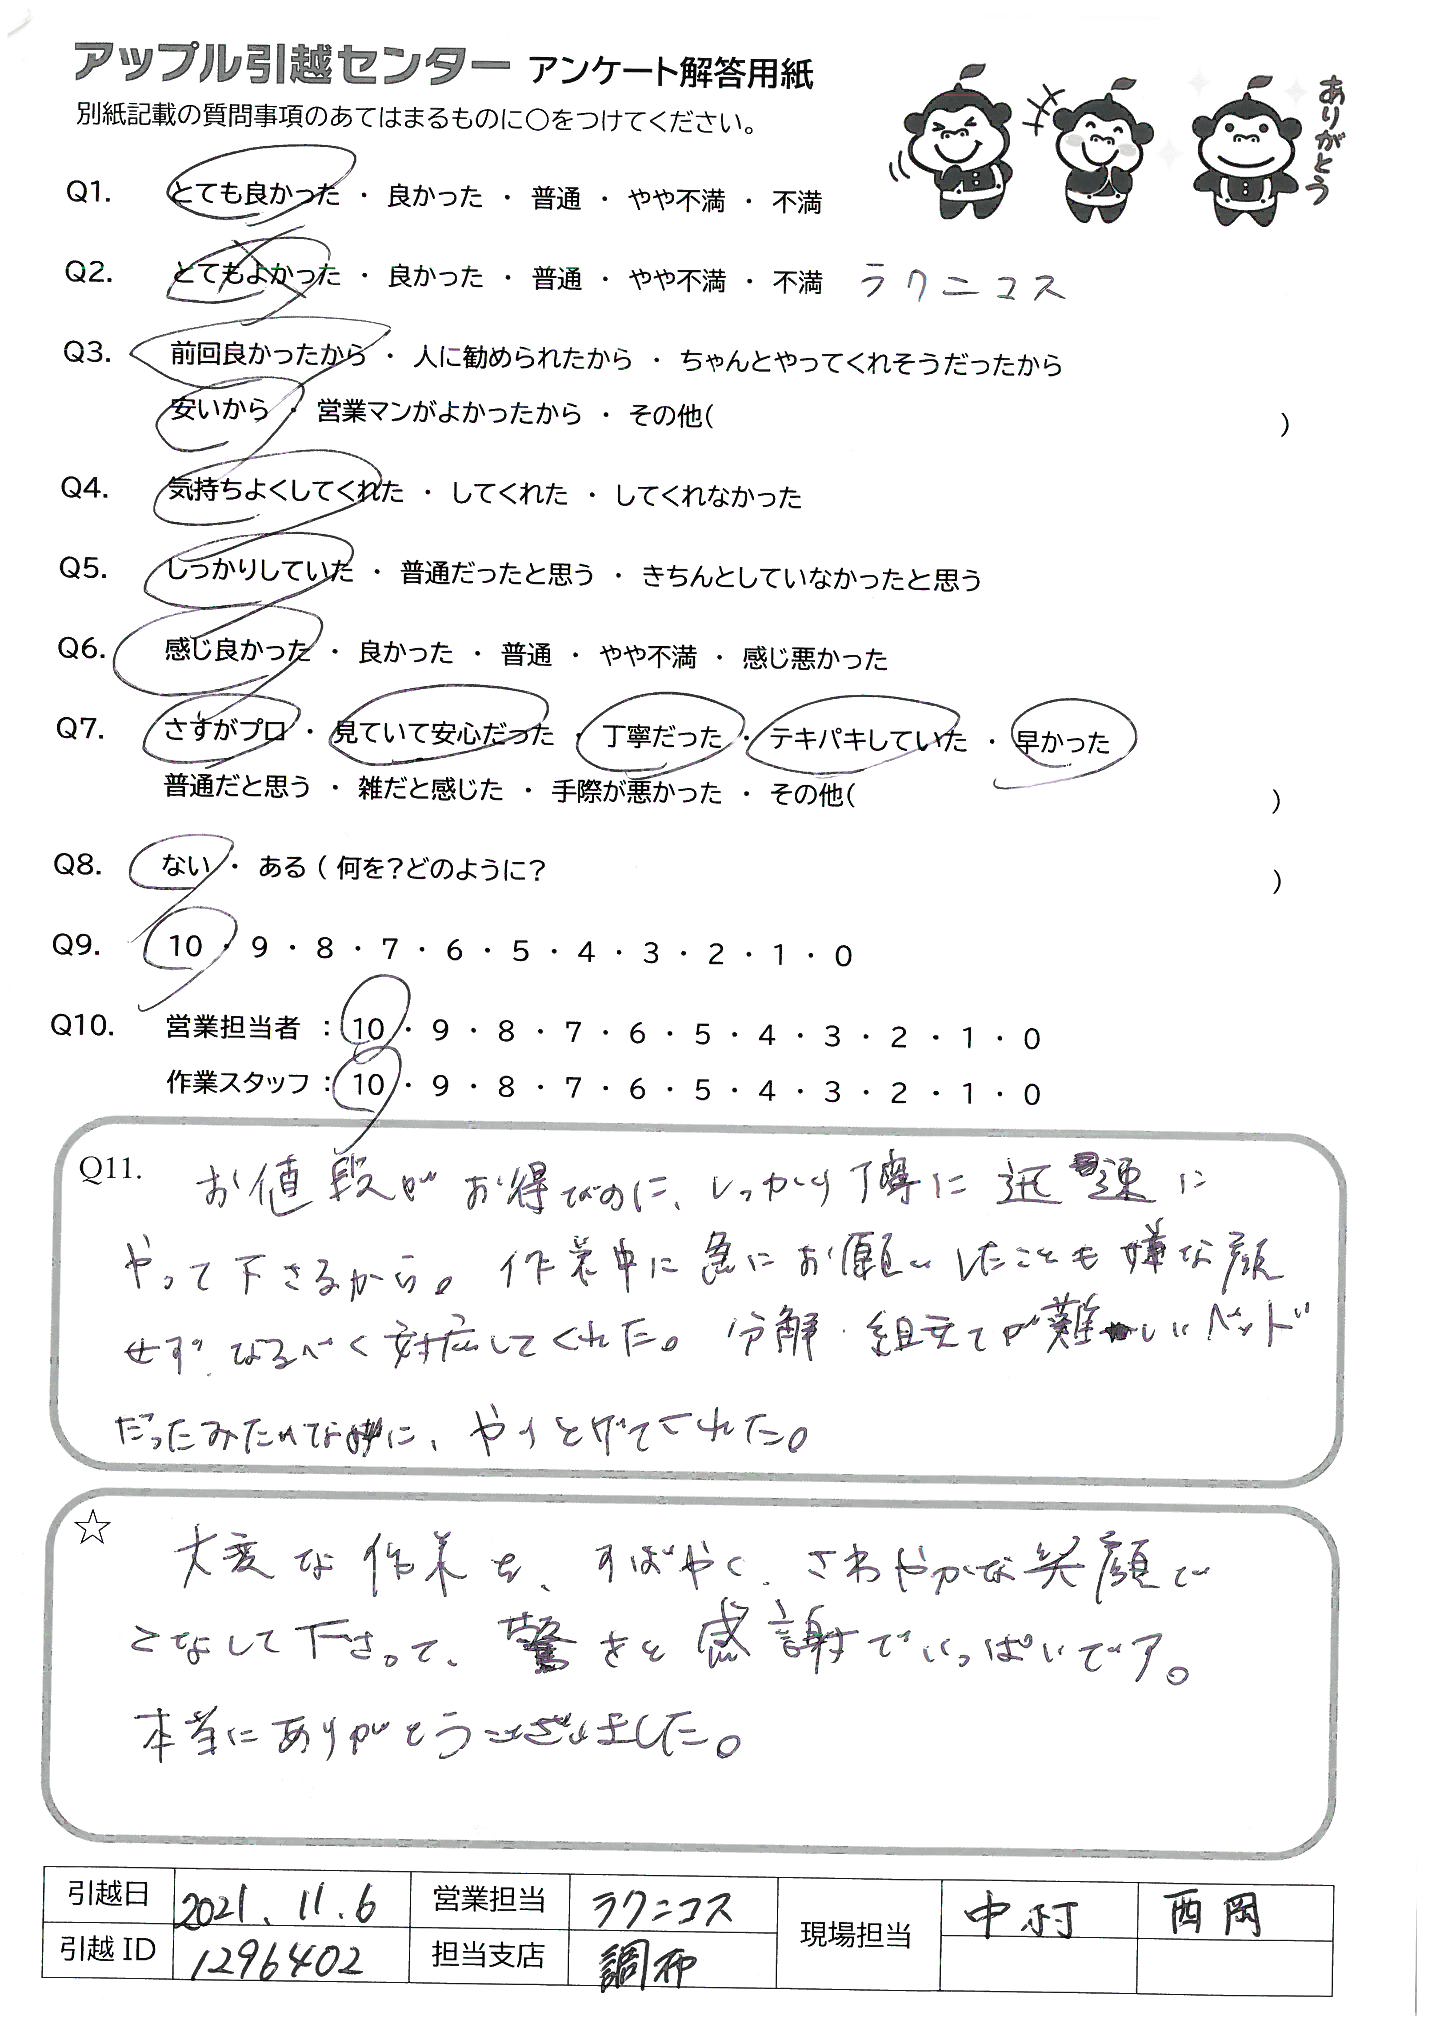 アップル引越センター アンケート解答用紙
別紙記載の質問事項のあてはまるものに○をつけてください。
ありがとう
Q1. とても良かった ・ 良かった ・ 普通 ・ やや不満 ・ 不満
Q2. とてもよかった ・ 良かった ・ 普通 ・ やや不満 ・ 不満 ラクニコス
Q3. 前回良かったから ・ 人に勧められたから ・ ちゃんとやってくれそうだったから
安いから ・ 営業マンがよかったから ・ その他( )
Q4. 気持ちよくしてくれた ・ してくれた ・ してくれなかった
Q5. しっかりしていた ・ 普通だったと思う ・ きちんとしていなかったと思う
Q6. 感じ良かった ・ 良かった ・ 普通 ・ やや不満 ・ 感じ悪かった
Q7. さすがプロ ・ 見ていて安心だった ・ 丁寧だった ・ テキパキしていた ・ 早かった
普通だと思う ・ 雑だと感じた ・ 手際が悪かった ・ その他( )
Q8. ない ・ ある ( 何を?どのように? )
Q9. 10 ・ 9 ・ 8 ・ 7 ・ 6 ・ 5 ・ 4 ・ 3 ・ 2 ・ 1 ・ 0
Q10. 営業担当者 : 10 ・ 9 ・ 8 ・ 7 ・ 6 ・ 5 ・ 4 ・ 3 ・ 2 ・ 1 ・ 0
作業スタッフ : 10 ・ 9 ・ 8 ・ 7 ・ 6 ・ 5 ・ 4 ・ 3 ・ 2 ・ 1 ・ 0
Q11. お値段がお得なのに、しっかり丁寧に迅速に
やって下さるから。作業中に急にお願いしたことも嫌な顔
せず、なるべく対応してくれた。分解・組立てが難しいベッド
だったみたいなのに、やりとげてくれた。
☆ 大変な作業を、すばやく、さわやかな笑顔で
こなして下さって、驚きと感謝でいっぱいです。
本当にありがとうございました。
引越日 2021.11.6 営業担当 ラクニコス 現場担当 中村 西岡
引越ID 1296402 担当支店 調布